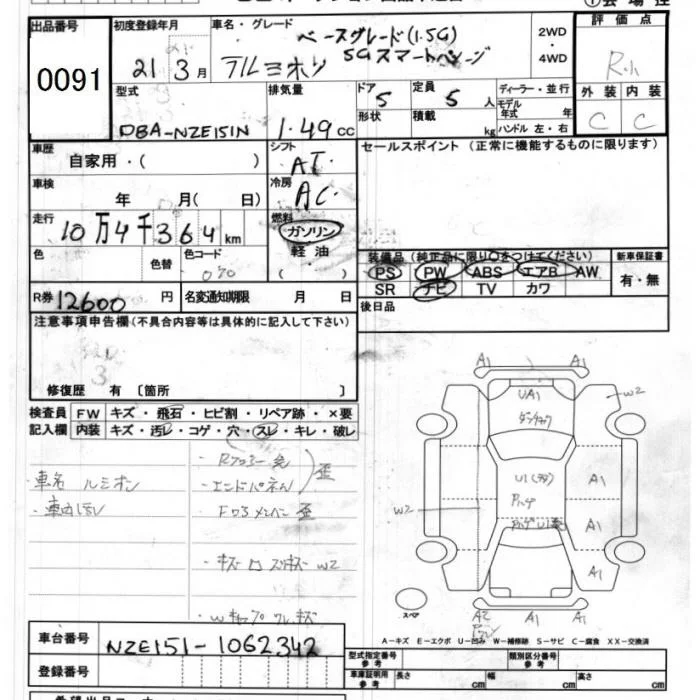 出品番号
0091
初度登録年月
21 3月
車名・グレード
ルミオン
ベースグレード(1.5G)
5Gスマートパッケージ
2WD
・
4WD
評価点
R
外装 内装
C C
型式
DBA-NZE151N
排気量
1.49cc
ドア 5
定員 5人
形状
積載 kg
ディーラー・並行
モデル年式 年
ハンドル 左・右
車歴
自家用・( )
シフト
AT
セールスポイント (正常に機能するものに限ります)
車検
年 月( 日)
冷房
AC
走行
10万4千364km
燃料
ガソリン
軽油
( )
色
色替
色コード
070
装備品 (純正品に限り○をつけてください)
PS PW ABS エアB AW
SR ナビ TV カワ
新車保証書
有・無
R券 12600円
名変通知期限 月 日
後日品
注意事項申告欄 (不具合内容等は具体的に記入して下さい)
修復歴 有 〔箇所 〕
検査員
記入欄
FW キズ・飛石・ヒビ割・リペア跡・×要
内装 キズ・汚レ・コゲ・穴・スレ・キレ・破レ
・車名 ルミオン
・エンドパネル 歪
W2
A1 A1
UA1
W2
U1
A1
W2
A1
A1
スペア
A2 A1 A1
A-キズ E-エクボ U-凹み W-補修跡 S-サビ C-腐食 XX-交換済
車台番号
NZE151-1062342
登録番号
型式指定番号
参考
類別区分番号
参考
車庫証明用
参考
長さ cm
幅 cm
高さ cm